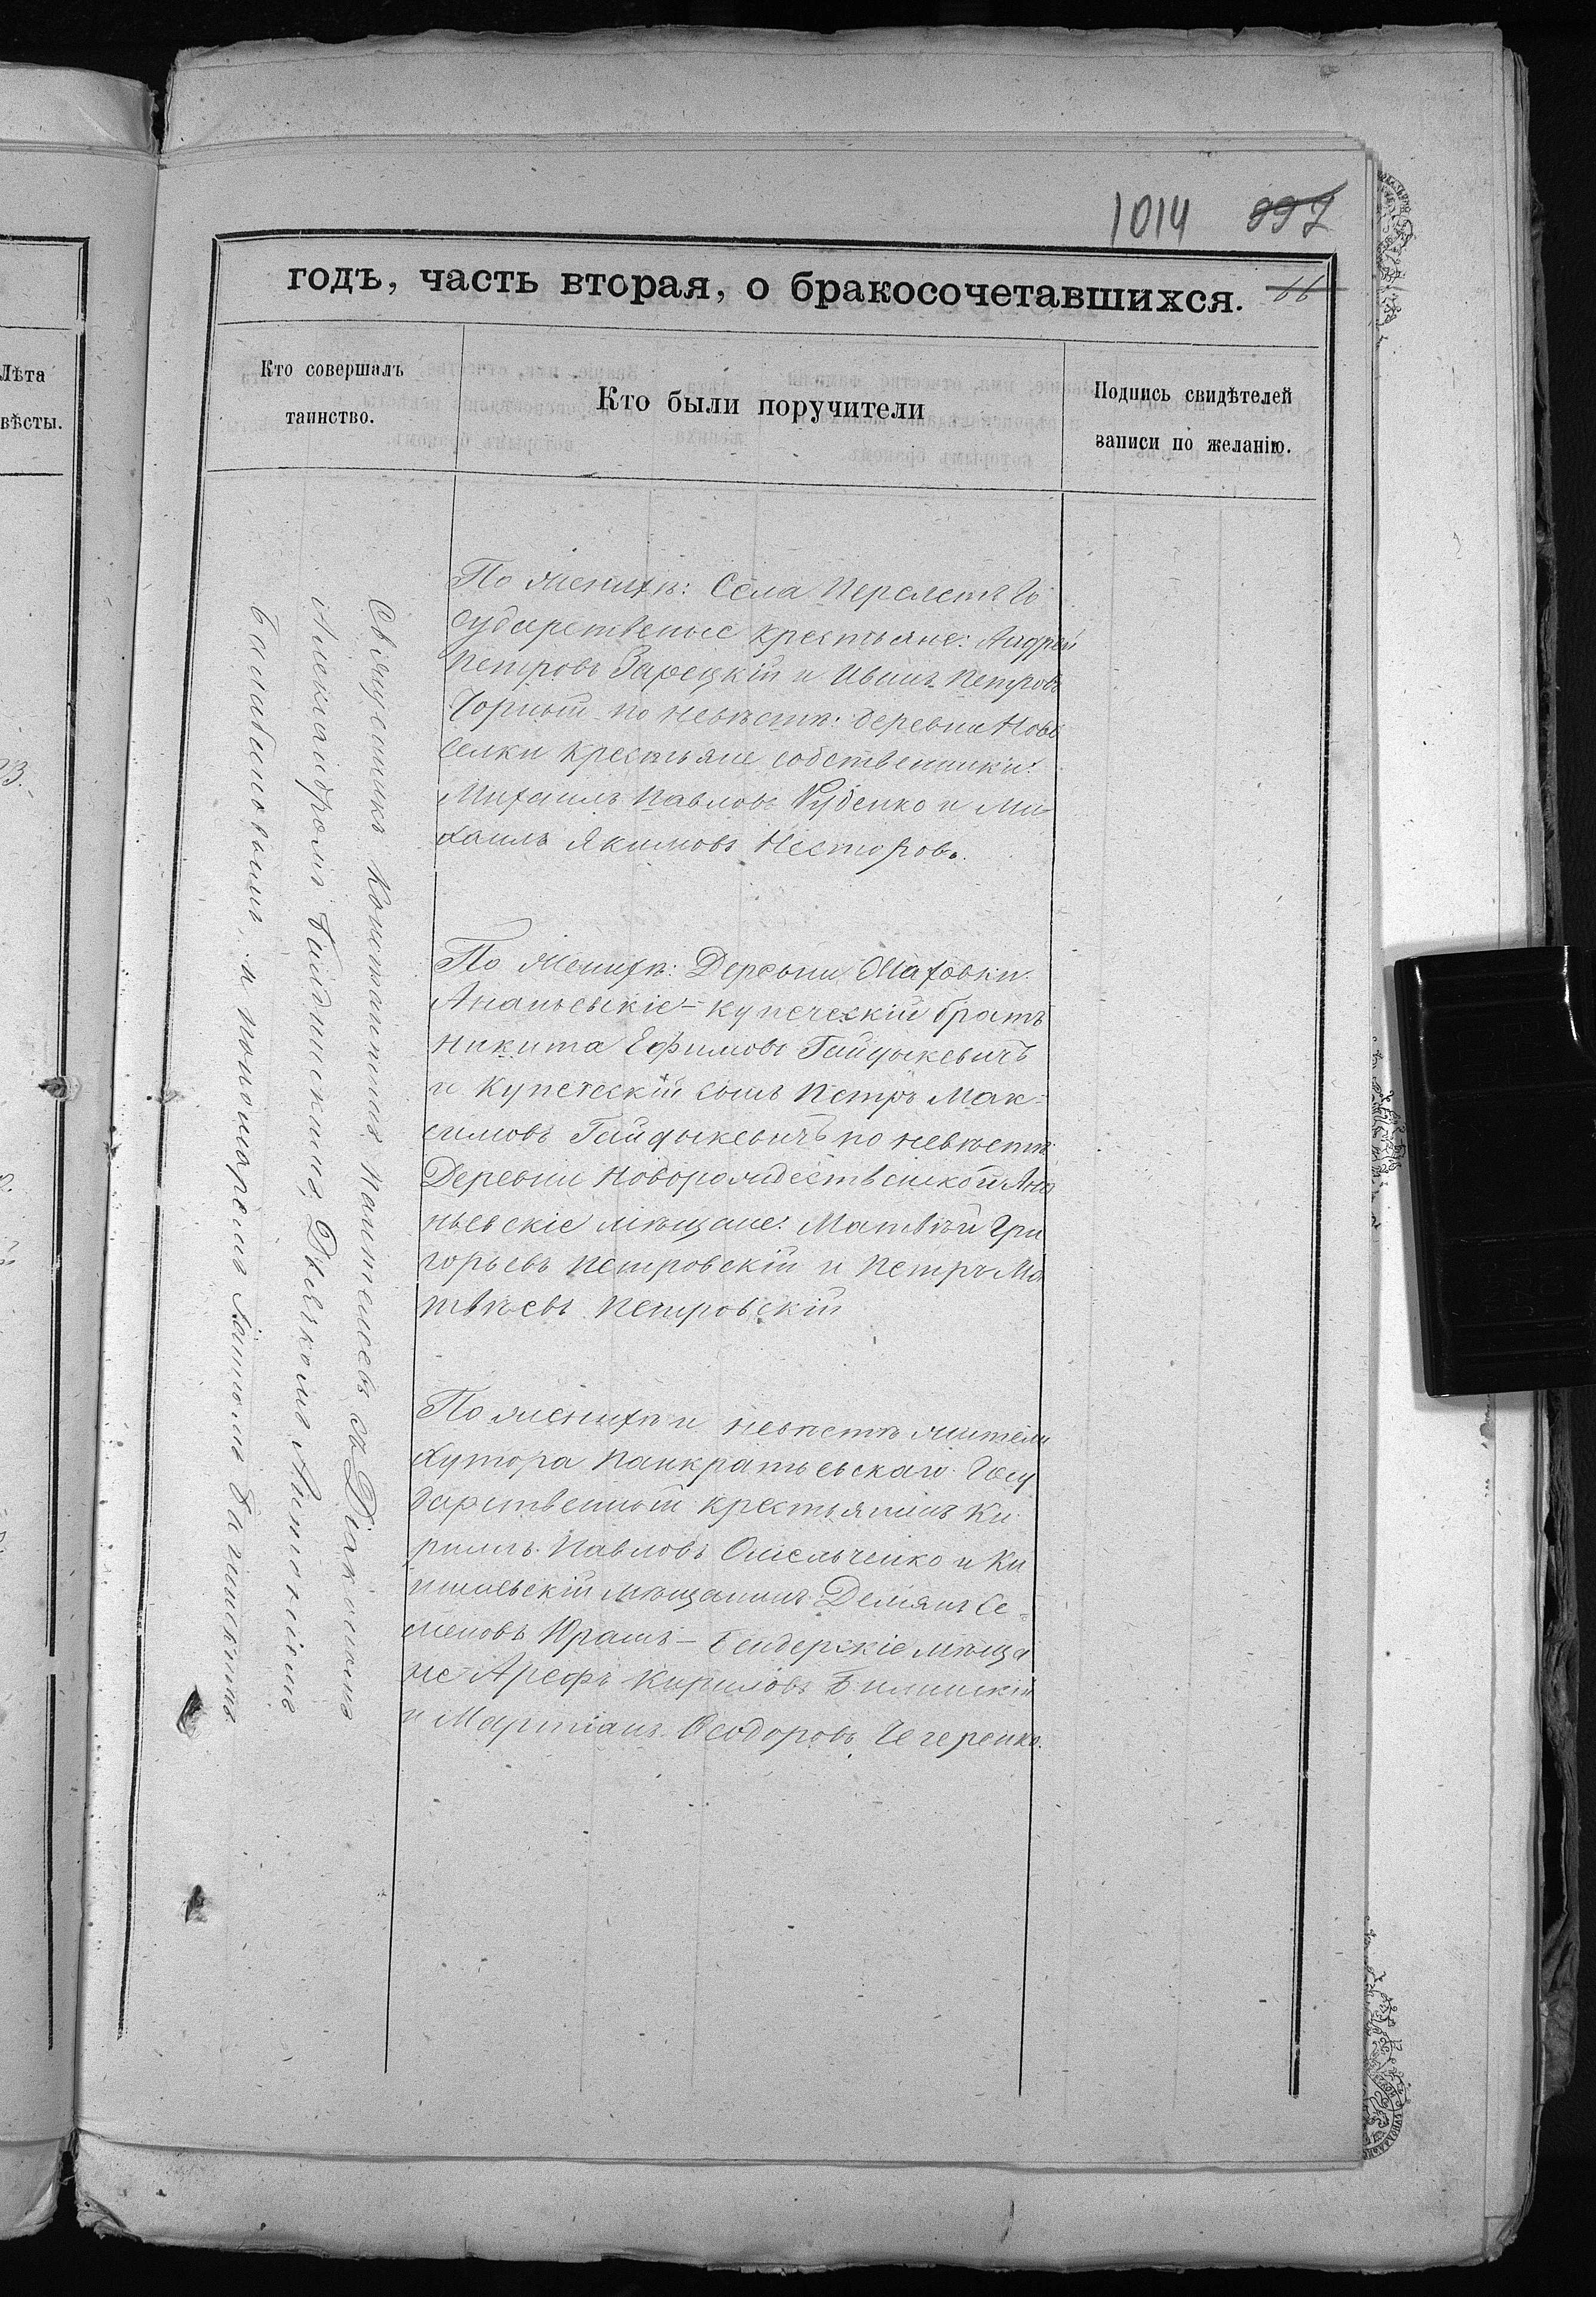 1014 997
годъ, часть вторая, о бракосочетавшихся. 66
Лѣта
вѣсты.
Кто совершалъ
таинство.
Кто были поручители
Подпись свидѣтелей
записи по желанію.
Священникъ Константинъ Пантелеевъ съ Діакономъ
Александромъ Дьячкомъ Антоніемъ
Балабановымъ и пономаремъ
По женихѣ: Села Перелетъ Го
сударственые крестьяне: Андрей
Петровъ Зарецкій и Иванъ Петровъ
Чорный по невѣстѣ: деревни Ново
селки крестьяне собственники:
Михаилъ Павловъ Руденко и Ми-
хаилъ Якимовъ Несторовъ.
По Женихѣ: Деревни Маховки
Ананьевскіе – купеческій братъ
Никита Ефимовъ Гайдыкевичъ
и Купеческій сынъ Петръ Мак-
симовъ Гайдыкевичъ по невѣстѣ
Деревни Новорождественской Ана
ньевскіе мѣщане: Матвѣй Гри
горьевъ Петровскій и Петръ Ма
твѣевъ Петровскій
По женихѣ и невѣстѣ жители
Хутора Панкратьевскаго Госу
дарственный крестьянинъ Ки
рилъ Павловъ Омельченко и Ки
шиневскій мѣщанинъ Деміянъ Се-
меновъ – Бендерскіе мѣща
не Арефъ Кириловъ Билинскій
и Мартіанъ Ѳеодоровъ Чегеренко.